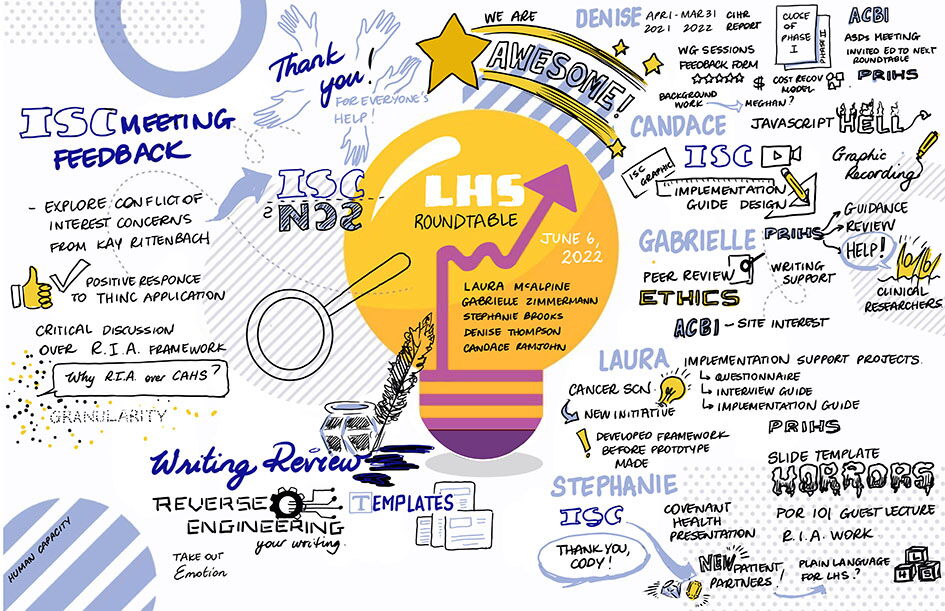 WE ARE
AWESOME!
Thank
you!
FOR EVERYONE'S
HELP!
ISC MEETING
FEEDBACK
- EXPLORE CONFLICT OF
INTEREST CONCERNS
FROM KAY RITTENBACH
POSITIVE RESPONCE
TO THINC APPLICATION
CRITICAL DISCUSSION
OVER R.I.A. FRAMEWORK
Why R.I.A over CAHS?
GRANULARITY
ISC
LHS
ROUNDTABLE
JUNE 6,
2022
LAURA McALPINE
GABRIELLE ZIMMERMANN
STEPHANIE BROOKS
DENISE THOMPSON
CANDACE RAMJOHN
Writing Review
REVERSE
ENGINEERING
your writing.
TAKE OUT
Emotion
TEMPLATES
HUMAN CAPACITY
DENISE
APR 1 - MAR 31
2021 2022
CIHR
REPORT
CLOSE
OF
PHASE
I
PHASE II
ACBI
ASDs MEETING
INVITED ED TO NEXT
ROUNDTABLE
PRIHS
WG SESSIONS
FEEDBACK FORM
$ COST RECOV
MODEL
BACKGROUND
WORK
MEGHAN?
CANDACE
JAVASCRIPT HELL
ISC
GRAPHIC
ISC
IMPLEMENTATION
GUIDE DESIGN
Graphic
Recording
GABRIELLE
PRIHS
GUIDANCE
REVIEW
HELP!
PEER REVIEW
WRITING
SUPPORT
CLINICAL
RESEARCHERS
ETHICS
ACBI - SITE INTEREST
LAURA
IMPLEMENTATION SUPPORT PROJECTS.
QUESTIONNAIRE
INTERVIEW GUIDE
IMPLEMENTATION GUIDE
CANCER SCN
NEW INITIATIVE
! DEVELOPED FRAMEWORK
BEFORE PROTOTYPE
MADE
PRIHS
SLIDE TEMPLATE
HORRORS
STEPHANIE
ISC
COVENANT
HEALTH
PRESENTATION
POR 101 GUEST LECTURE
R.I.A. WORK
THANK YOU,
CODY!
NEW PATIENT
PARTNERS!
PLAIN LANGUAGE
FOR LHS?
L
H S